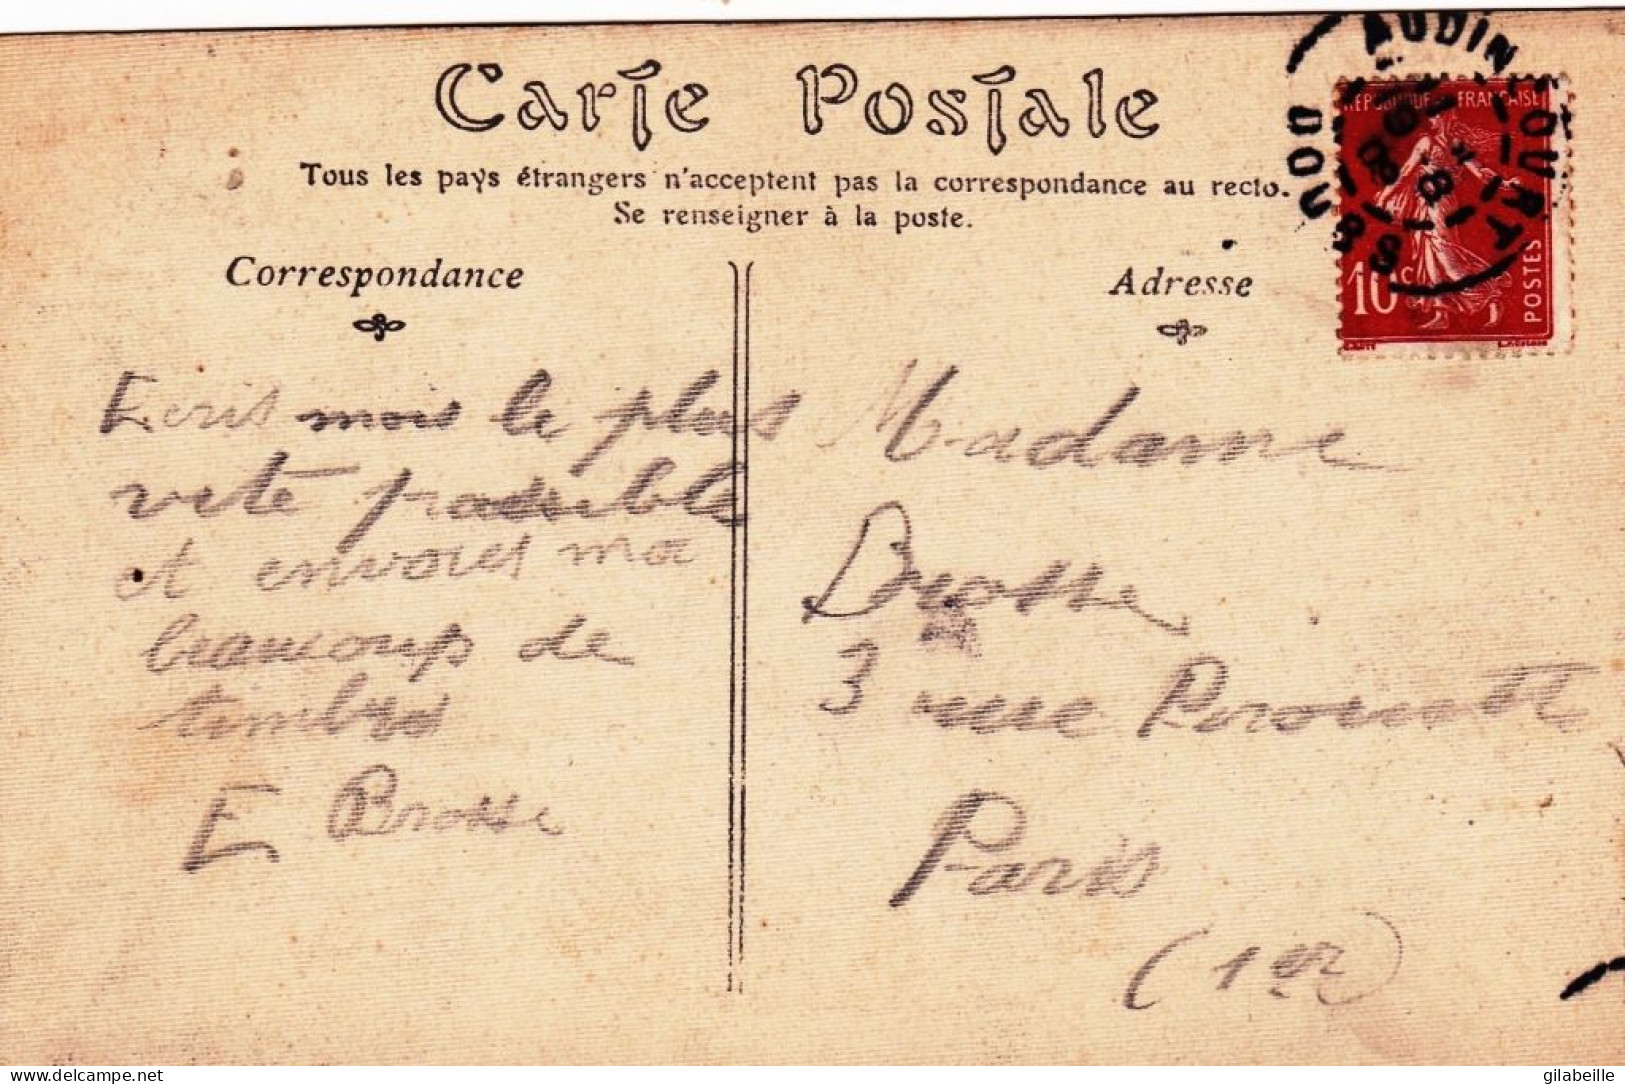 Carte Postale
Tous les pays étrangers n'acceptent pas la correspondance au recto.
Se renseigner à la poste.
Correspondance
Adresse
Ecris mois le plus
vite possible
et envoies moi
beaucoup de
timbres
E Brosse
Madame
Brosse
3 rue Pirouette
Paris
(1er)
REPUBLIQUE FRANÇAISE
10c
POSTES
AUDINCOURT
DOUBS
delcampe.net
gilabeille